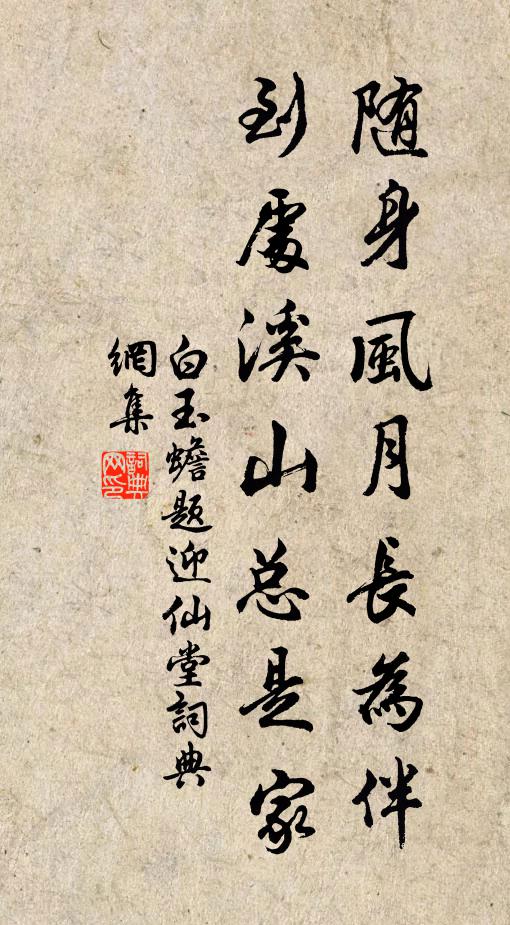 随身風月長為伴
到處溪山总是家
白玉蟾题迎仙堂詞典
網集
詞典網印